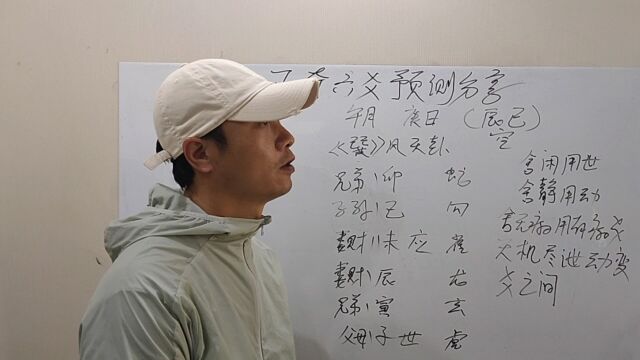 六爻预测分享
午月 庚日 (辰巳)
空
《巽》风天卦
兄弟 卯 蛇
子孙 巳 勾
妻财 未 应 雀
妻财 辰 龙
兄弟 寅 玄
父母 子 世 虎
舍闲用世
舍静用动
舍无病用有病爻
天机尽泄动变
爻之间